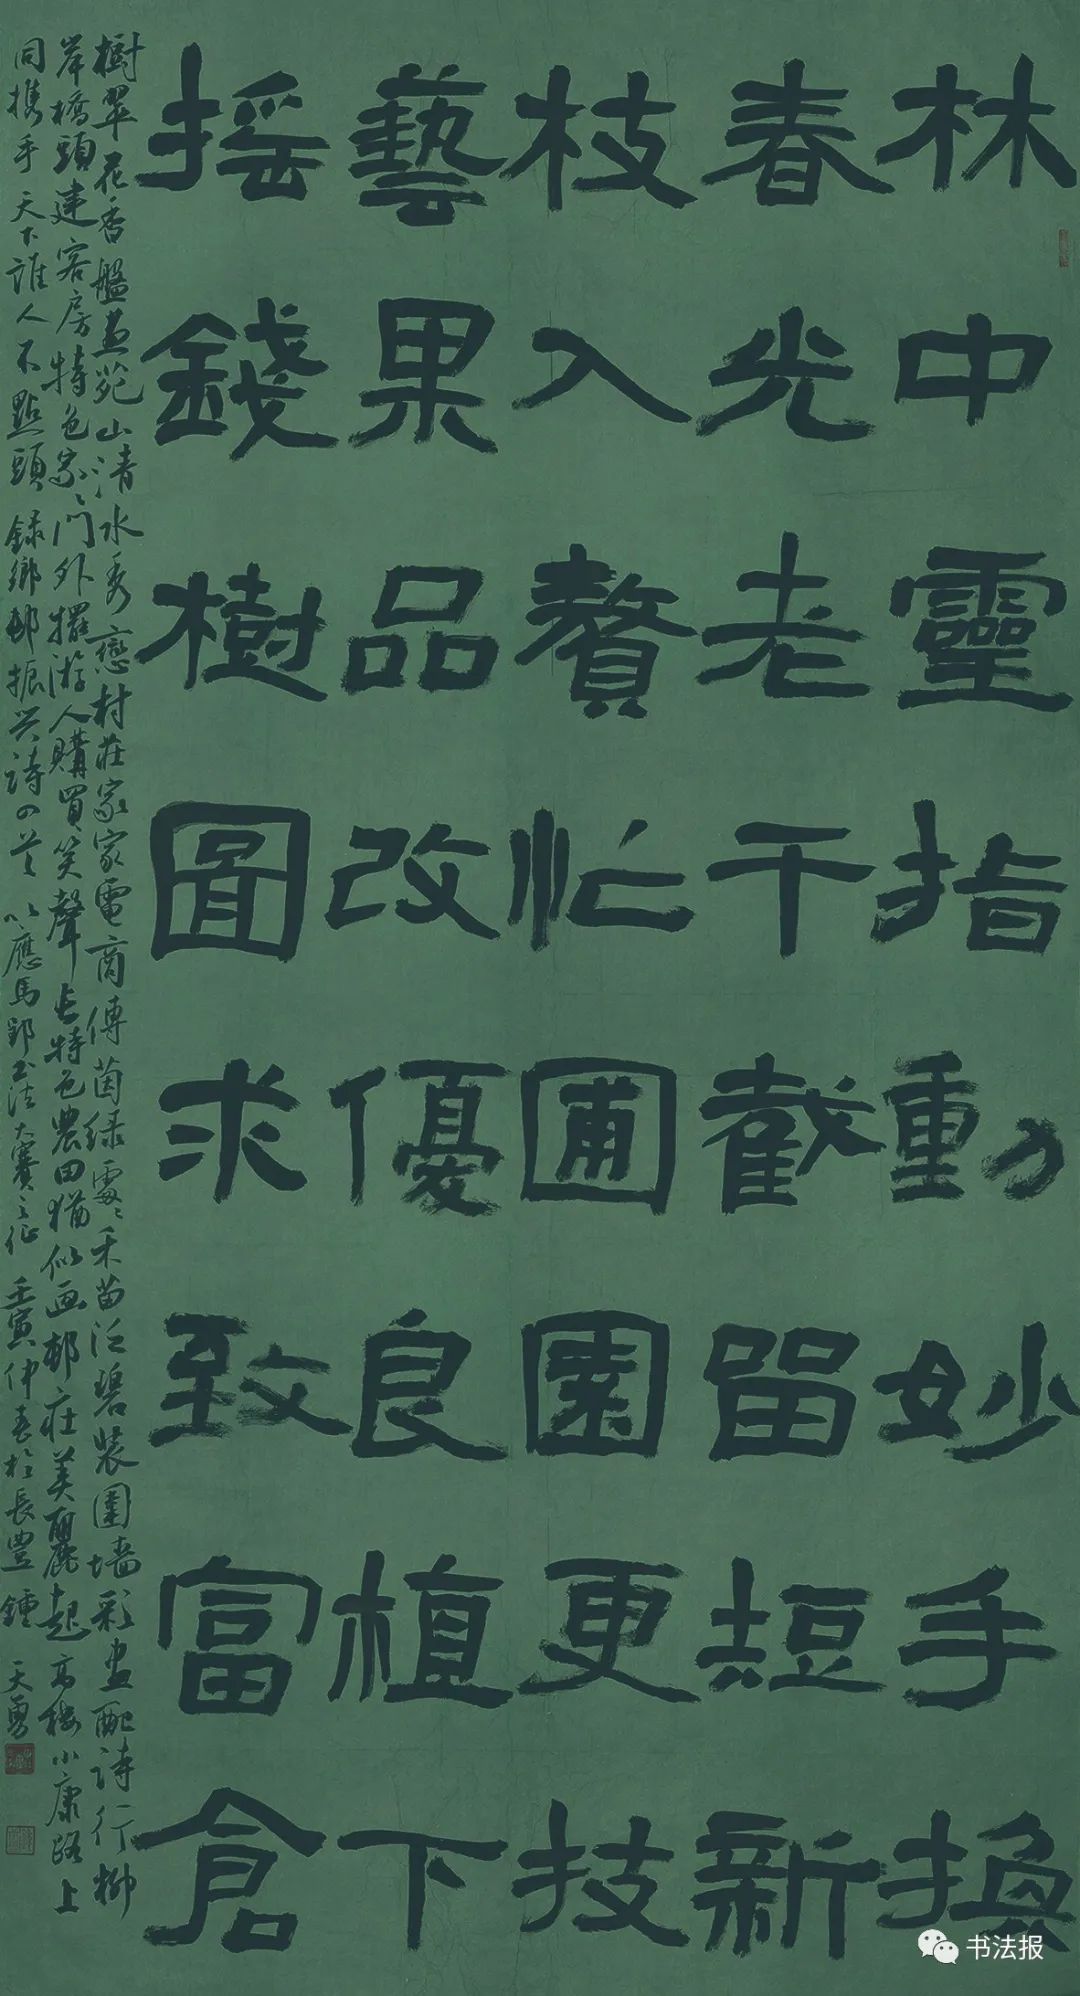 林中靈指動妙手換
春光老干截留短新
枝入贅忙圃園更技
藝果品改優良植下
摇錢樹圖求致富倉
樹翠花香盤画苑山清水秀戀村莊家家電商傳茵绿處〻禾苗泛碧裝圍墻彩画配诗行柳
岸橋頭建客房特色家〻門外擺游人購買笑聲長特色農田猶似画邨莊美麗起高楼小康路上
同携手天下誰人不點頭録鄉邨振兴诗四首以應馬郢书法大賽之征壬寅仲春於長豐鍾天勇
书法报